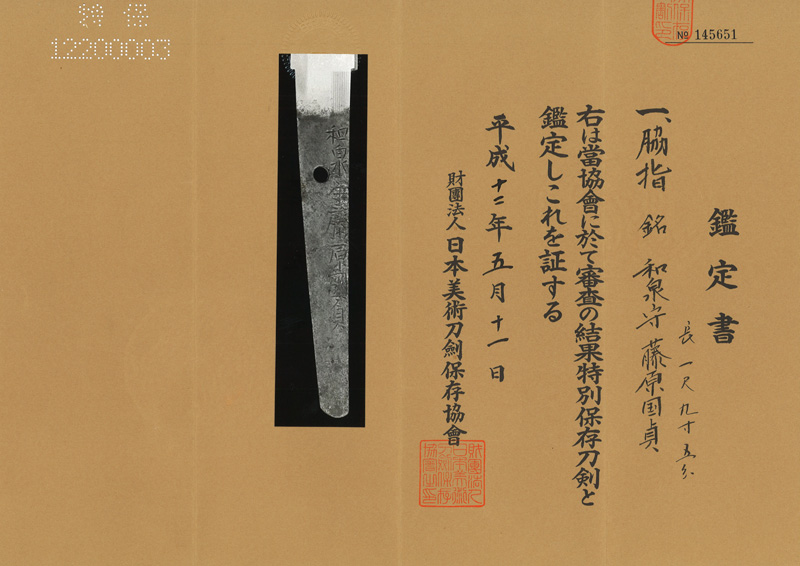 № 145651
鑑定書
一、脇指 銘 和泉守藤原国貞
長一尺九寸五分
右は當協會に於て審査の結果特別保存刀剣と
鑑定しこれを証する
平成十二年五月十一日
財團法人日本美術刀劍保存協會
特保
12200003